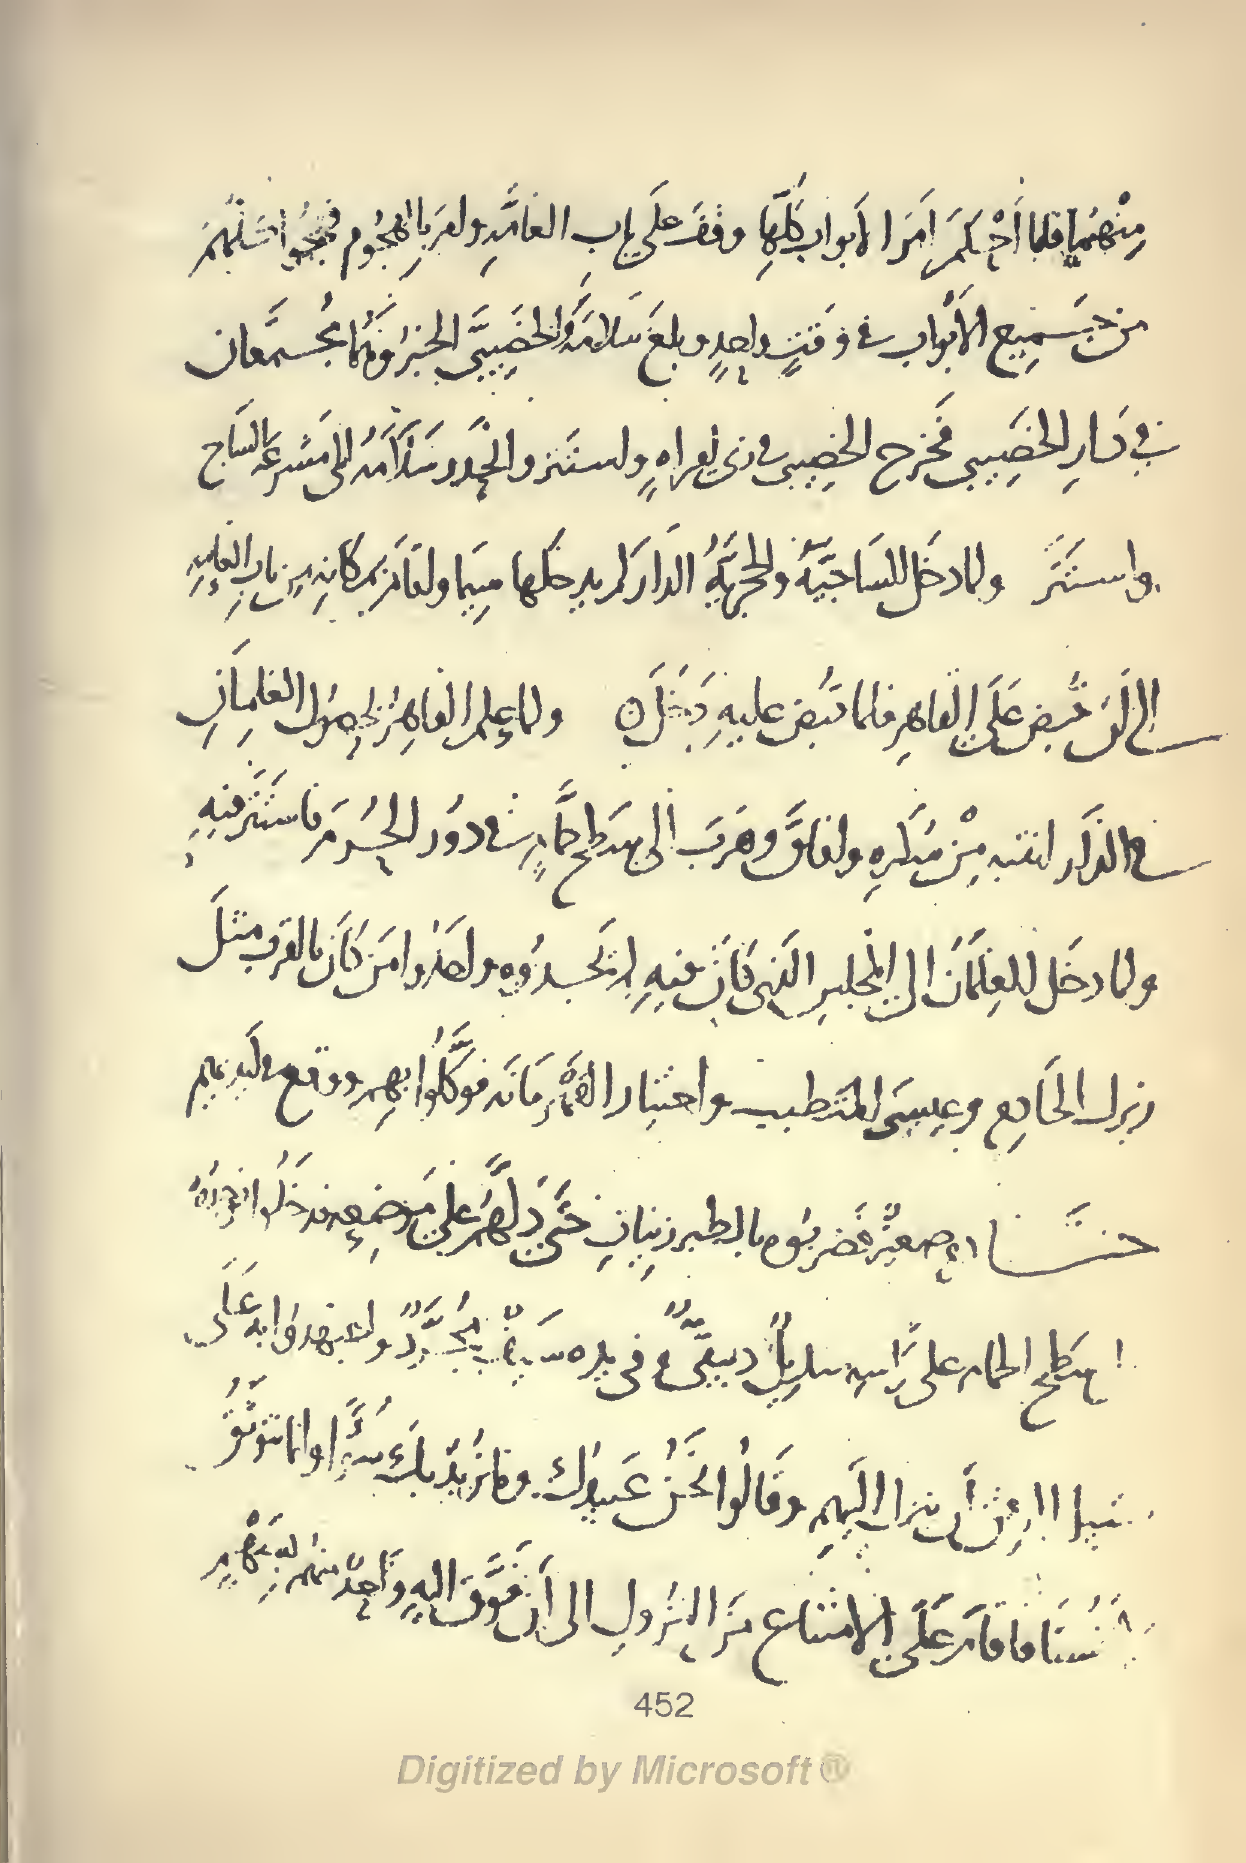 منهما فلما أحكم أمر الأبواب كلها وقف على باب العامة وامر بالهجوم فهجموا كلهم
من جميع الأبواب في وقت واحد وبلغ سلامة والخصيبي الخبر وهما مجتمعان
في دار الخصيبي فخرج الخصيبي في زي امراه واستتر وانحدر سلامة الى مشرعة الساج
واستتر ولما دخل الساجية والحجرية الدار لم يدخلها سيما واقام بمكانه من باب العامة
الى ان قبض على القاهر فلما قبض عليه دخل ه ولما علم القاهر بحصول الغلمان
في الدار انتبه من سكره وافاق وهرب الى سطح حمام في دور الحرم فاستتر فيه
ولما دخل الغلمان الى المجلس الذي كان فيه لم يجدوه واخذوا من كان بالقرب مثل
زيرك الخادم وعيسى المتطبب واختيار القهرمانه فوكلوا بهم ووقع في ايديهم
خادم صغير فضربوه بالطبرزينات حتى دلهم على موضعه فدخلوا فوجدوه
على سطح الحمام على راسه منديل دبيقي وفي يده سيف مجرد واجتهدوا به على
سبيل الرفق أن ينزل اليهم وقالوا نحن عبيدك وما نريد بك سوءا وانما نتوثق
لأنفسنا فاقام على الامتناع من النزول الى أن فوق اليه واحد منهم بسهم
452
Digitized by Microsoft ®